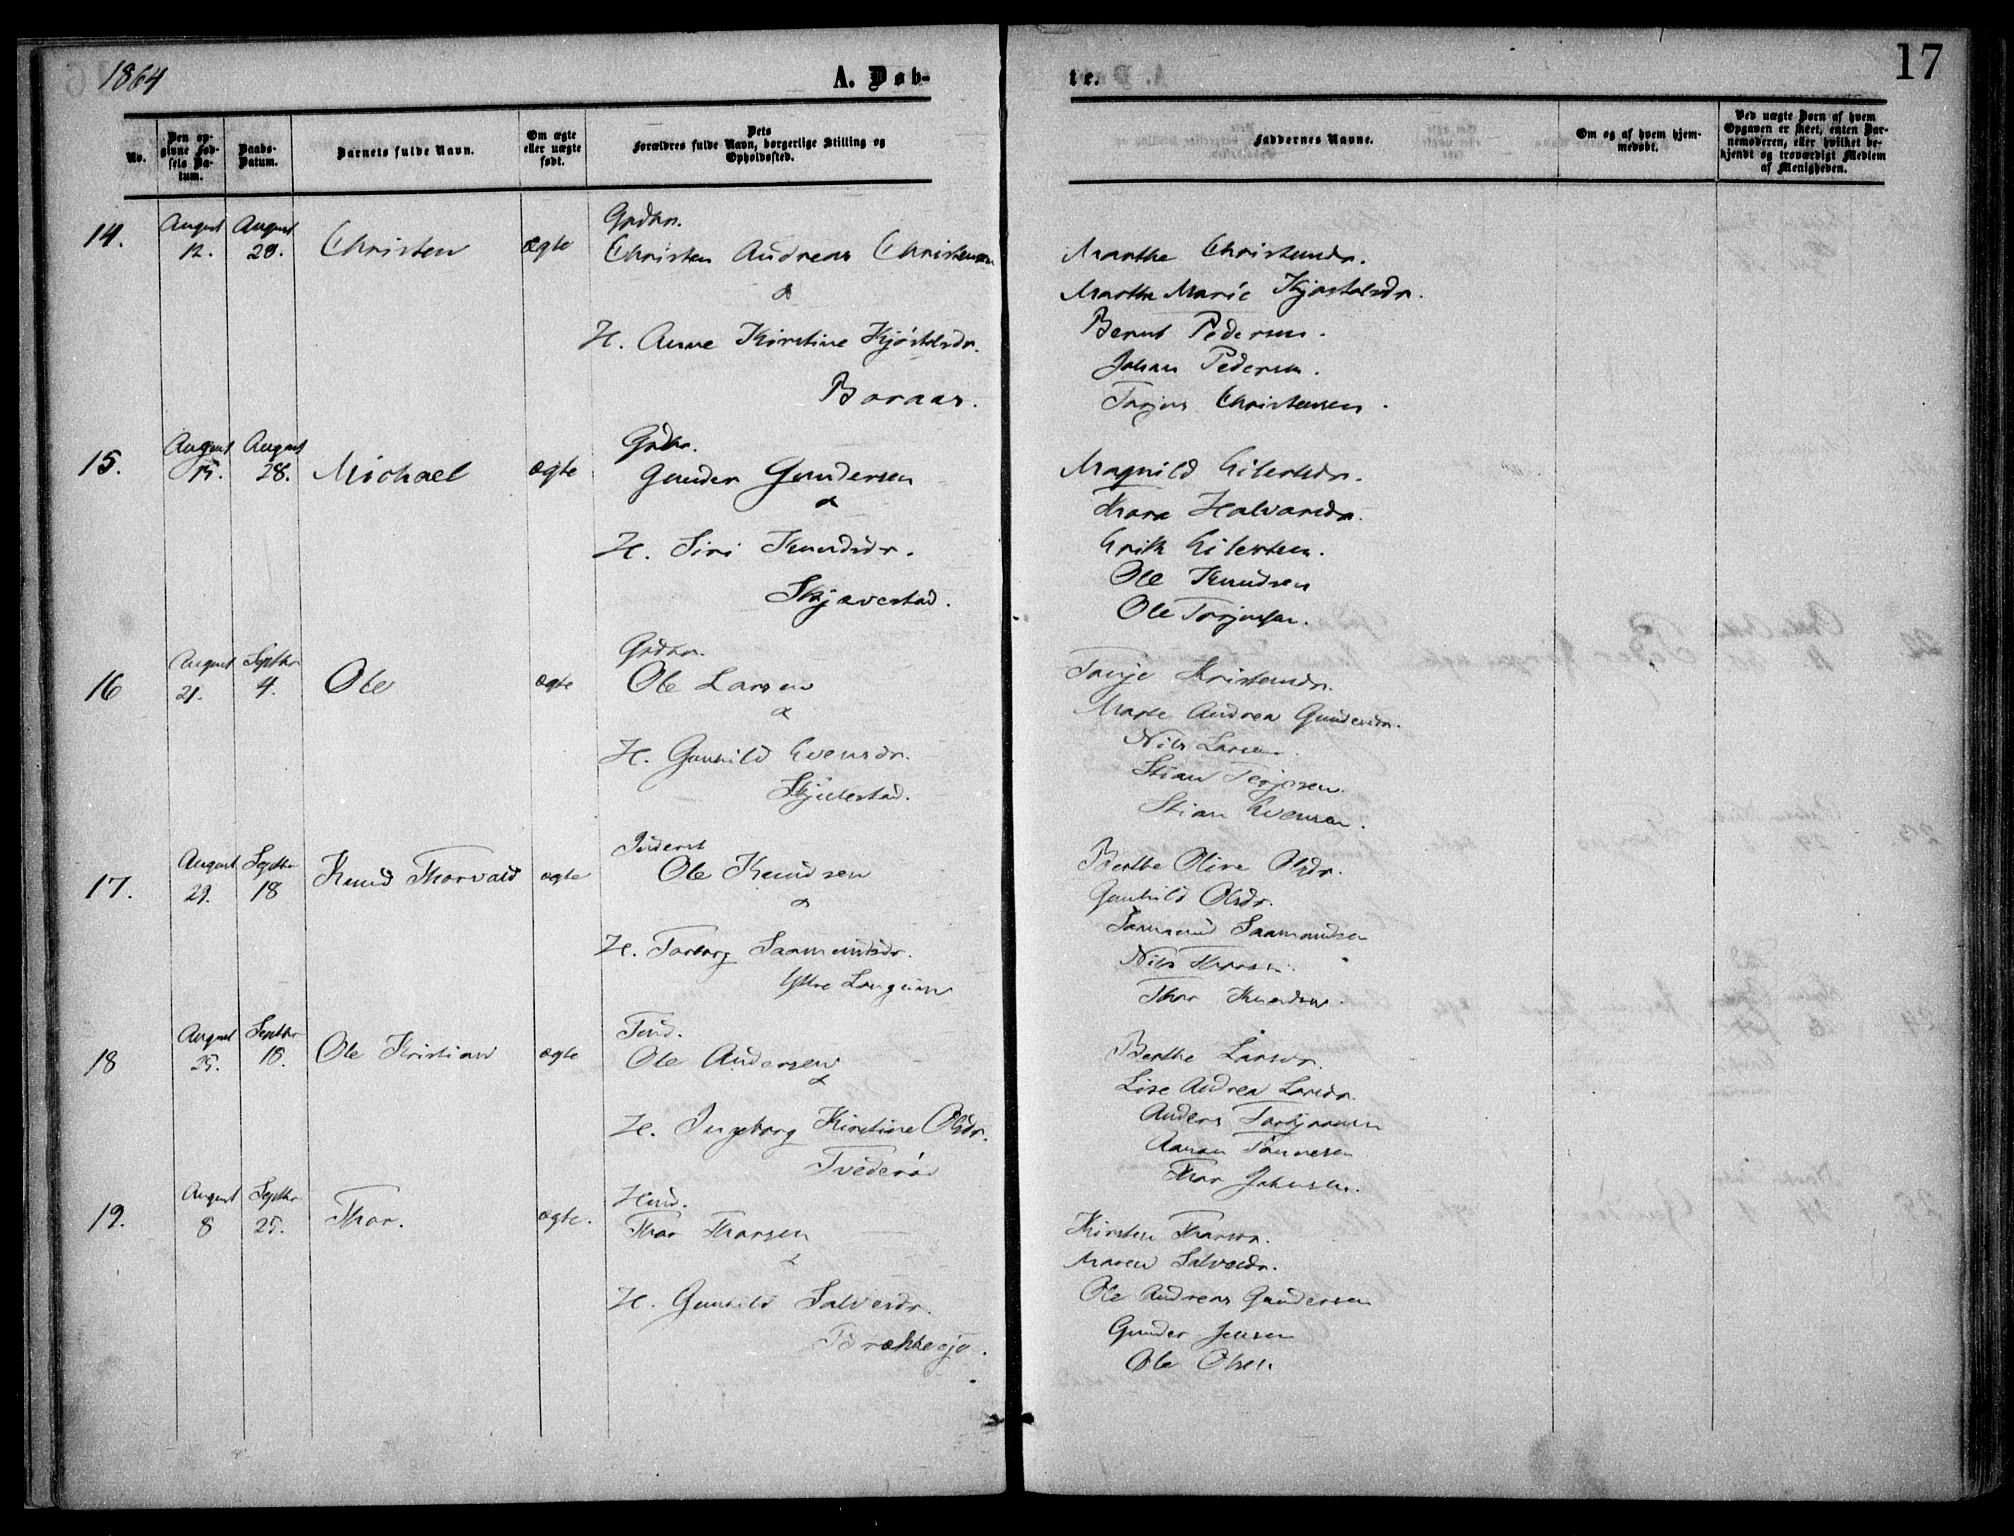 1864
A. Døb-
te.
17
No.
Den op-
givne Fød-
sels Da-
tum.
Daabs-
Datum.
Barnets fulde Navn.
Om ægte
eller uægte
født.
Dets
Forældres fulde Navn, borgerlige Stilling og
Opholdssted.
Faddernes Navne.
Om og af hvem hjem-
medøbt.
Ved uægte Børn af hvem
Opgaven er skeet, enten Bar-
nemoderen, eller hvilket be-
kjendt og troværdigt Medlem
af Menigheden.
14. August 12. August 28. Christen ægte
Grdbr.
Christen Andreas Christensen
&
H. Anne Kirstine Kjøstelsdr.
Boraas.
Marthe Christensdr.
Marthe Marie Kjøstelsdr.
Bernt Pedersen.
Johan Pedersen.
Torjus Christensen.
15. August 15. August 28. Michael ægte
Grdbr.
Gunder Gundersen
&
H. Siri Knudsdr.
Skjævestad.
Magnild Eilertsdr.
Thora Halvorsdr.
Erik Eilertsen.
Ole Knudsen
Ole Torjusen.
16 August 21. Septbr 4. Ole ægte
Grdbr.
Ole Larsen
&
H. Gunhild Evensdr.
Skjulestad.
Tonje Kristensdr.
Marte Andrea Gundersdr.
Nils Larsen.
Stian Terjesen.
Stian Evensen.
17. August 29. Septbr 18 Knud Thorvald ægte
Inderst
Ole Knudsen
&
H. Torborg Saamundsdr.
Ytre Langum
Berthe Oline Olsdr.
Gunhild Olsdr.
Saamund Saamundsen
Nils
Thor Knudsen.
18 August 25. Septbr 18. Ole Kristian ægte
Ole Andersen
&
H. Ingeborg Kirstine Olsdr.
Tvederød
Berthe Larsdr.
Lise Andrea Larsdr.
Anders
Aanon Tønnesen
Thor Johnsen.
19. August 8 Septbr 25. Thor. ægte.
Husmd.
Thor Thorsen
&
H. Gunhild Salvesdr.
Brækkesjø.
Kirsten Thorsdr.
Maren Salvesdr.
Ole Andreas Gundersen
Gunder Jensen
Ole Olsen